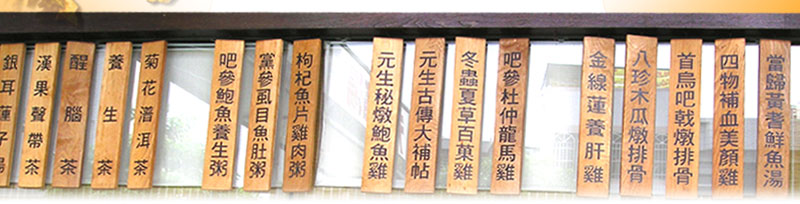 當歸黃耆鮮魚湯
四物補血美顏雞
首烏吧戟燉排骨
八珍木瓜燉排骨
金線蓮養肝雞
吧參杜仲龍馬雞
冬蟲夏草百菓雞
元生古傳大補帖
元生秘燉鮑魚雞
枸杞魚片雞肉粥
黨參虱目魚肚粥
吧參鮑魚養生粥
菊花潽洱茶
養生茶
醒腦茶
漢果聲帶茶
銀耳蓮子湯